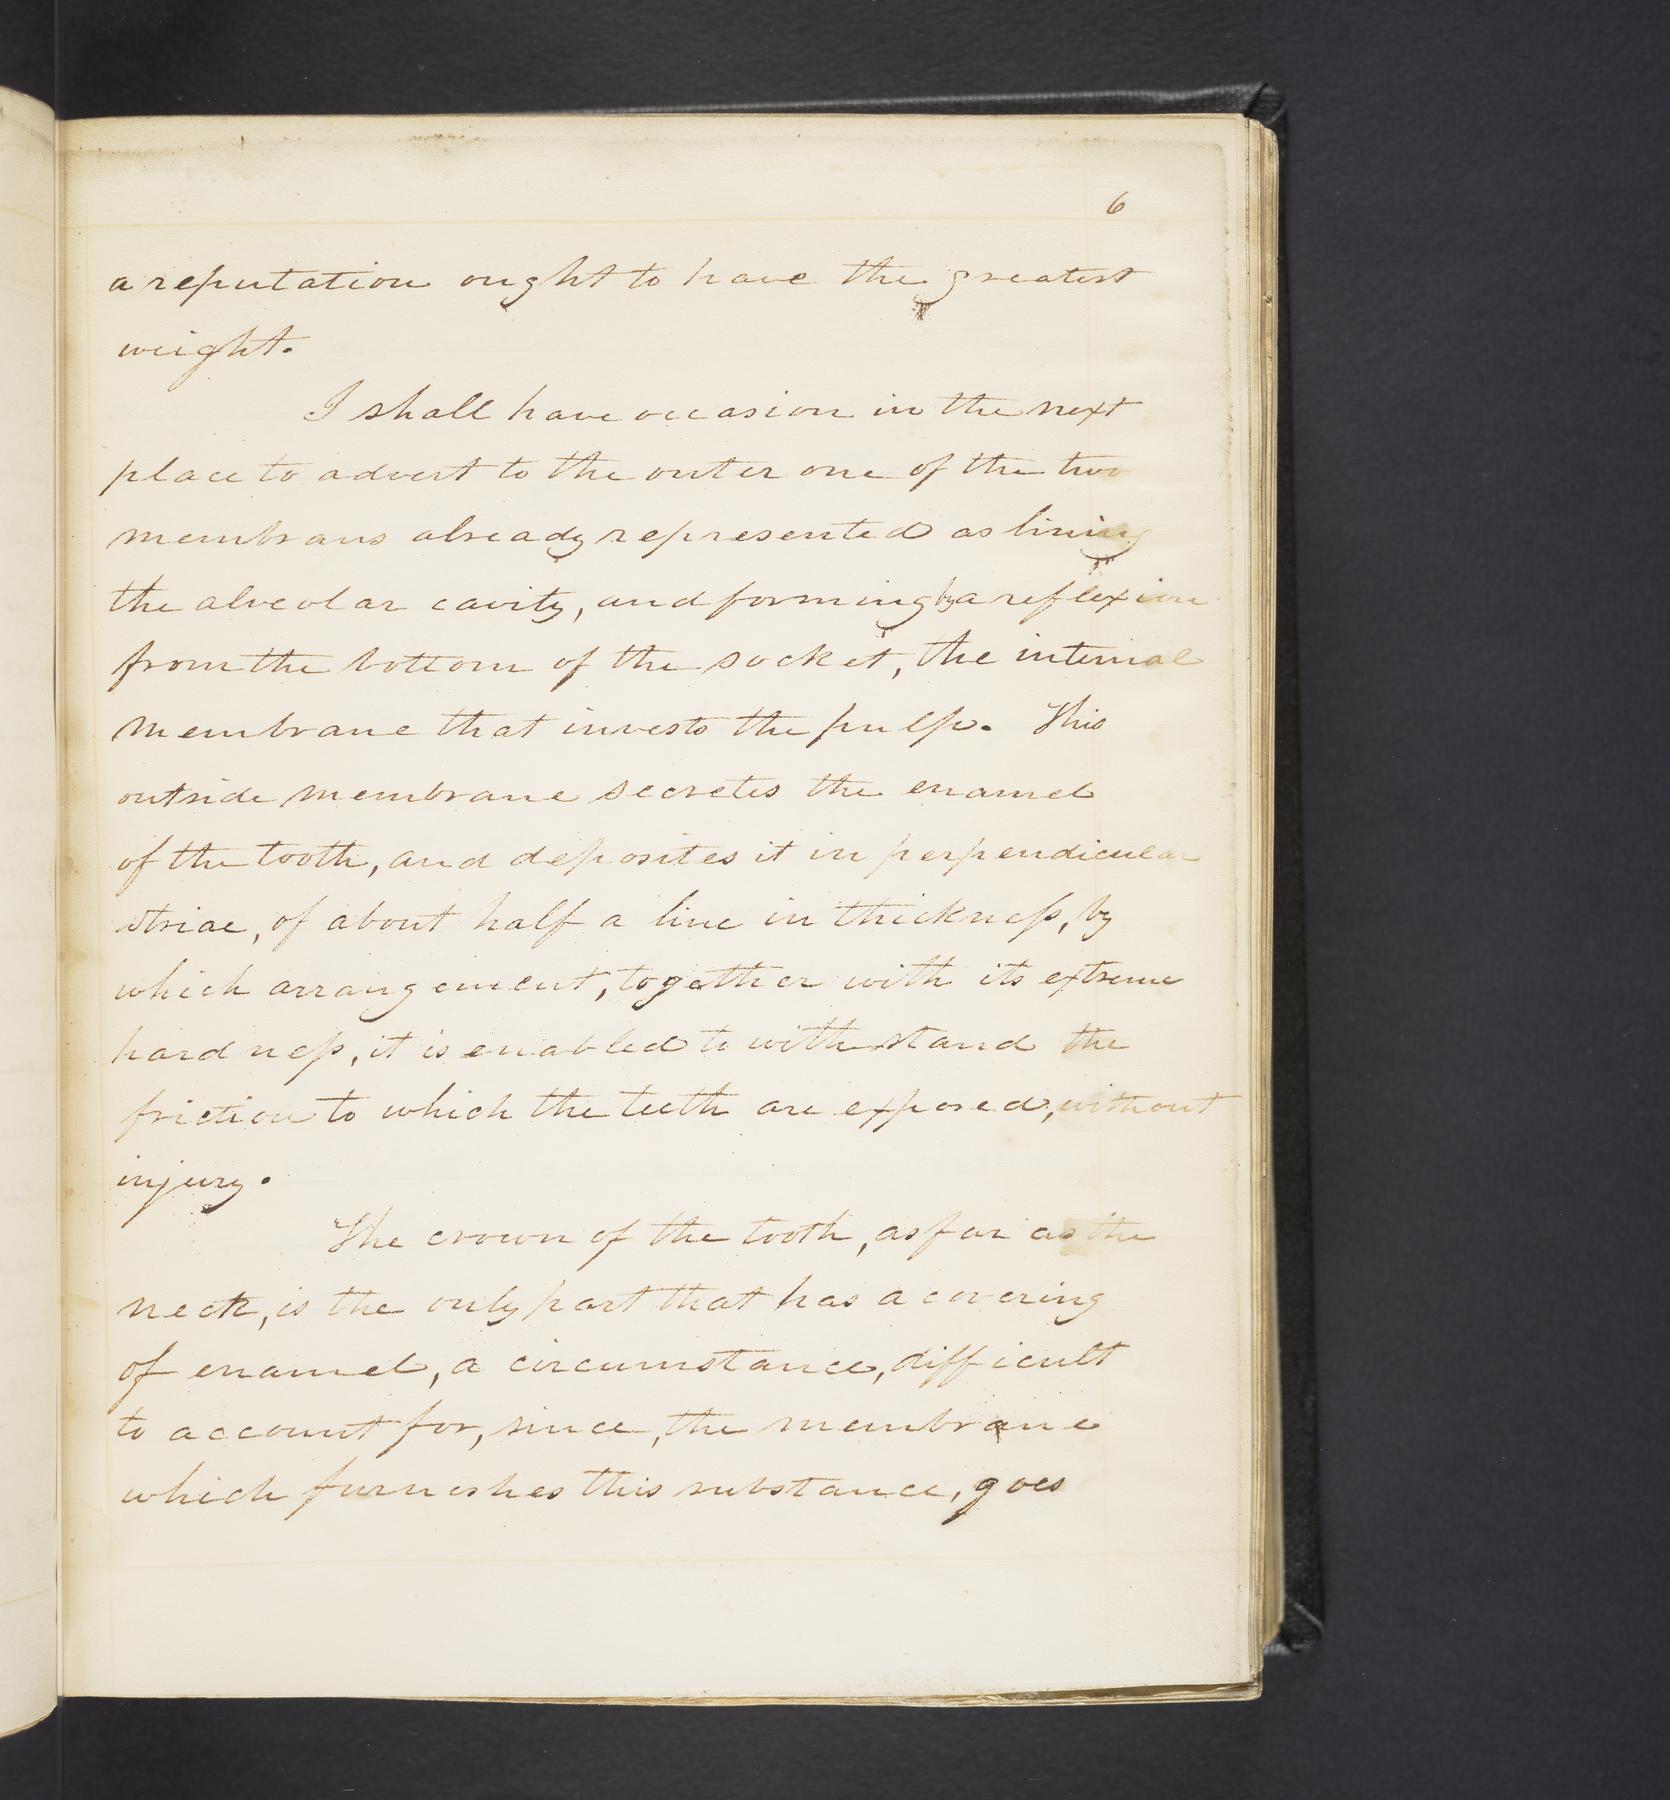 6
a reputation ought to have the greatest
weight.
I shall have occasion in the next
place to advert to the outer one of the two
membrans already represented as lining
the alveolar cavity, and forming by a reflexion
from the bottom of the socket, the internal
membrane that invests the pulp. This
outside membrane secretes the enamel
of the tooth, and deposites it in perpendicular
striae, of about half a line in thickneſs, by
which arrangement, together with its extreme
hardneſs, it is enabled to withstand the
friction to which the teeth are exposed, without
injury.
The crown of the tooth, as far as the
neck, is the only part that has a covering
of enamel, a circumstance, difficult
to account for, since, the membrane
which furnishes this substance, goes